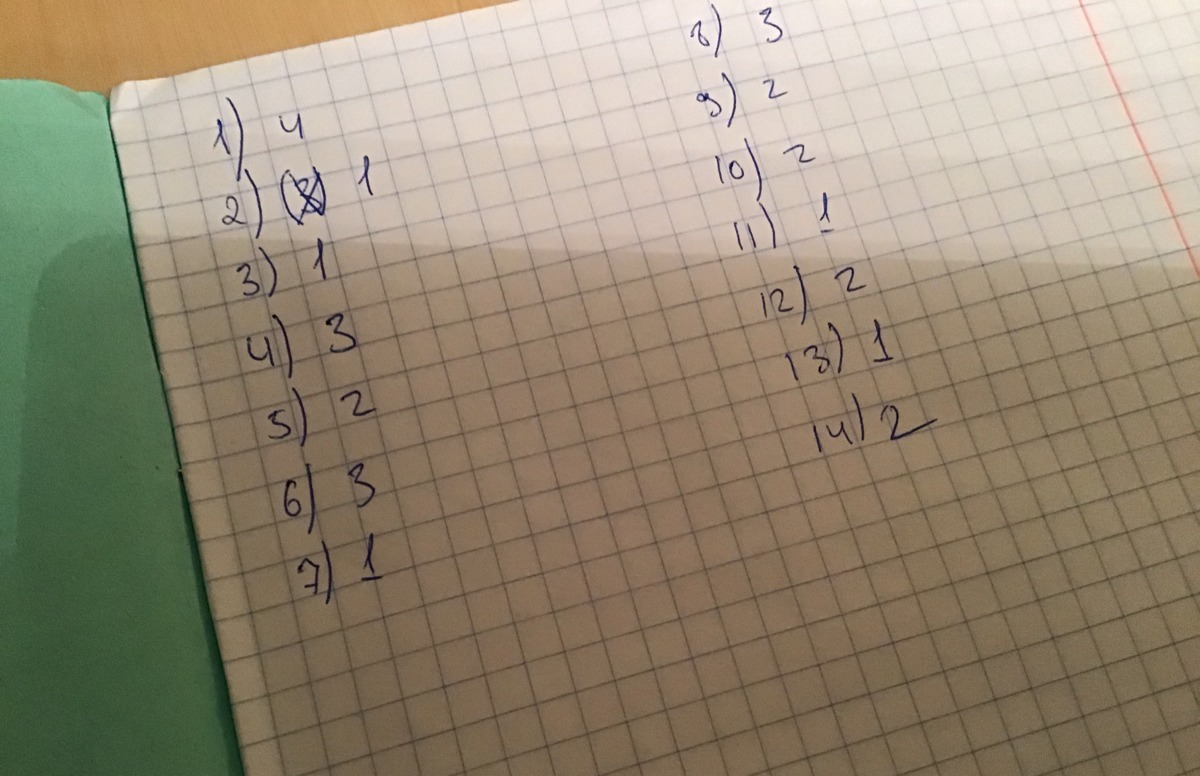 1) 4
2) 1
3) 1
4) 3
5) 2
6) 3
7) 1
8) 3
9) 2
10) 2
11) 1
12) 2
13) 1
14) 2